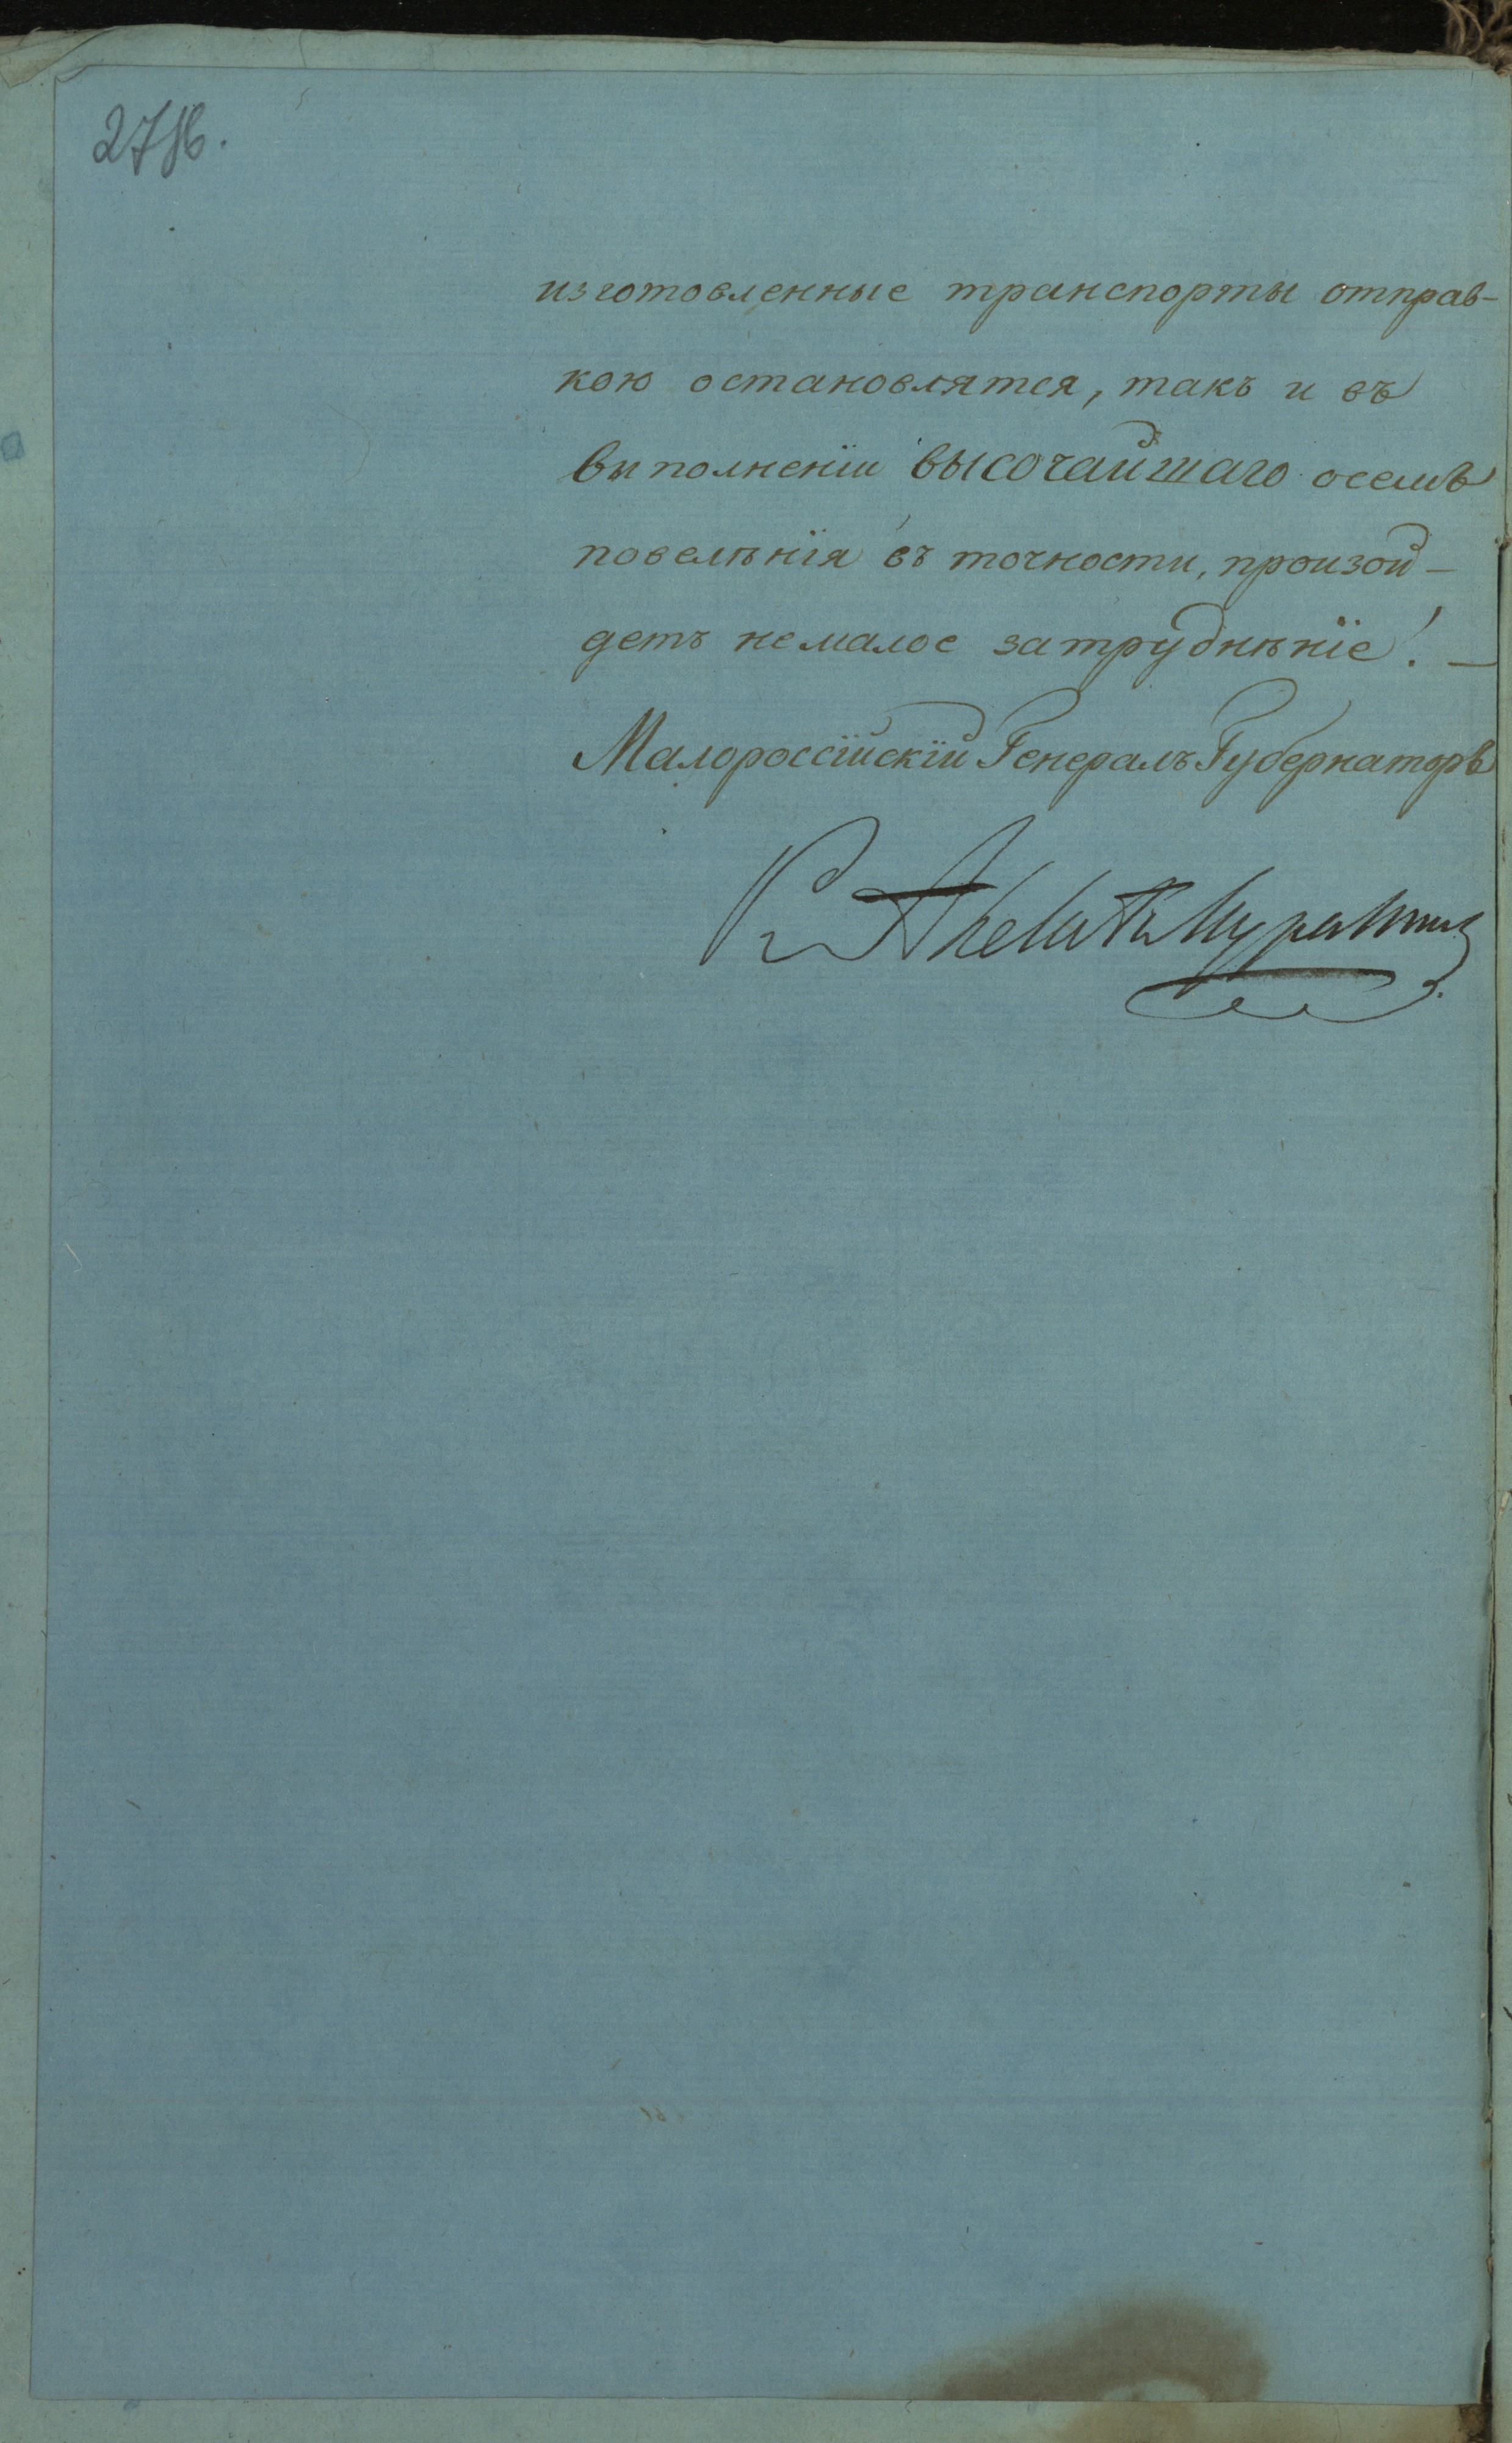 изготовленные транспорты отправ-
кою остановлятся, такъ и въ
выполненїи высочайшаго осемъ
повелѣнїя въ точности, произой-
детъ немалое затруднѣнїе! —
Малороссїйскїй Генералъ Губернаторъ